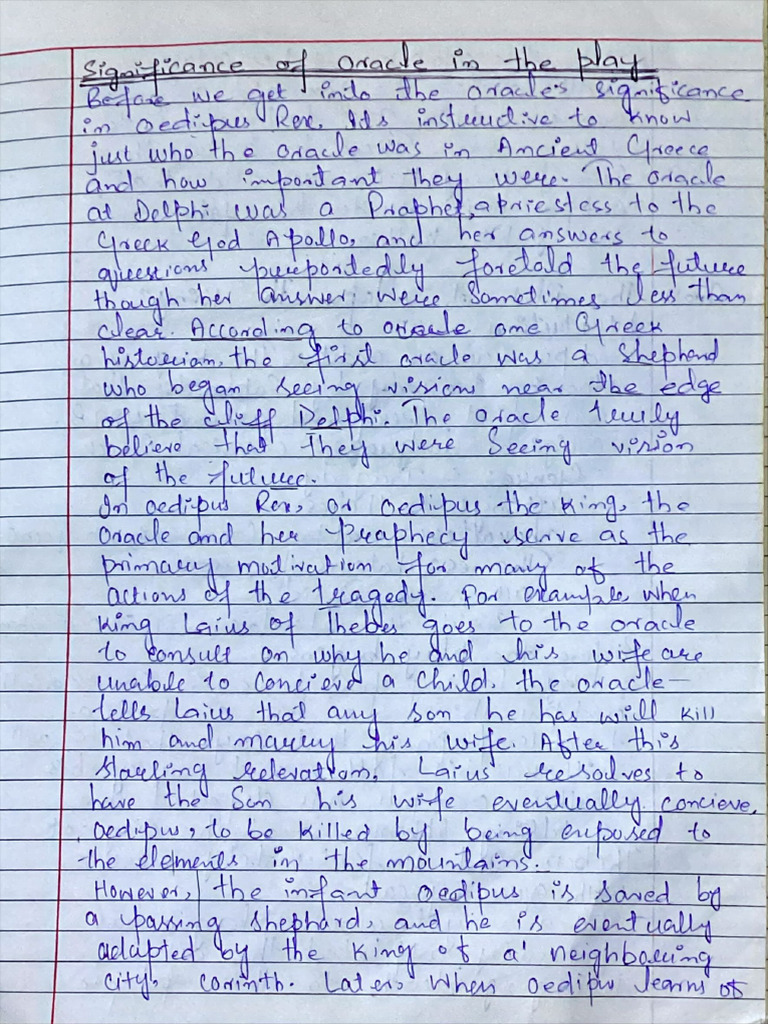 Significance of Oracle in the play
Before we get into the oracle's significance
in Oedipus Rex. Its instructive to know
just who the oracle was in Ancient Greece
and how important they were. The oracle
at Delphi was a Prophet, a priestess to the
Greek God Apollo, and her answers to
questions purportedly foretold the future
though her answer were sometimes less than
clear. According to oracle one Greek
historian, the first oracle was a Shephend
who began seeing vision near the edge
of the cliff Delphi. The oracle truly
believe that they were seeing vision
of the future.
In oedipus Rex, or oedipus the King, the
oracle and her Prophecy serve as the
primary motivation for many of the
actions of the tragedy. For example when
King Laius of Thebes goes to the oracle
to consult on why he and his wife are
unable to concieve a child. the oracle
tells Laius that any son he has will kill
him and marry his wife. After this
starling relevation, Laius resolves to
have the Son his wife eventually concieve,
oedipus, to be killed by being exposed to
the elements in the mountains.
However, the infant oedipus is saved by
a passing shephard, and he is eventually
adapted by the King of a neighbouring
city, corinth. Later, when oedipu learns of